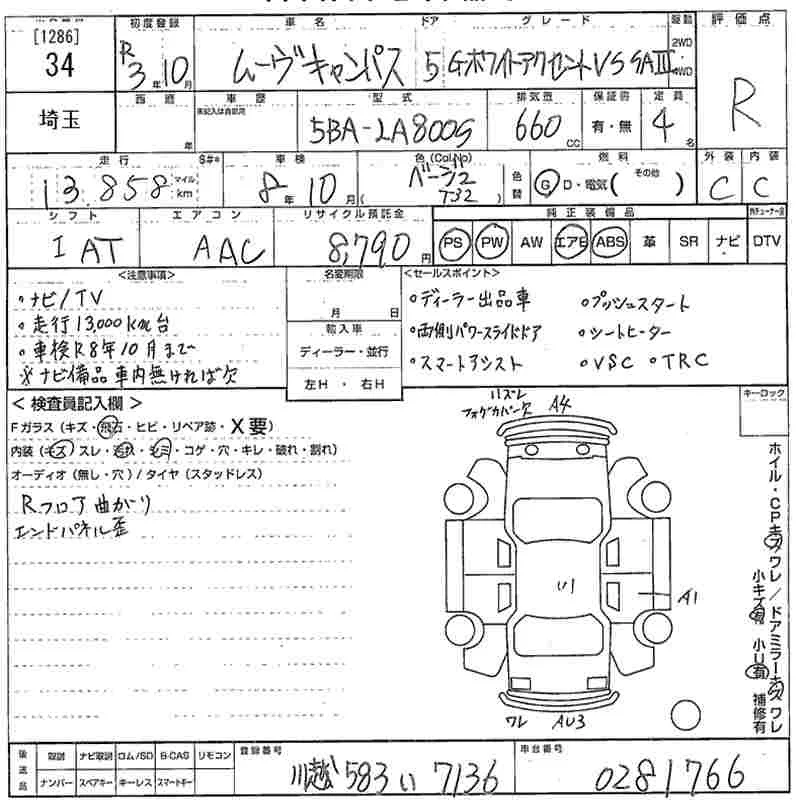 [1286]
34
埼玉
初度登録
R 3年 10月
車名
ムーヴキャンバス
ドア
5
グレード
GホワイトアクセントVS SAⅢ
駆動
2WD
4WD
評価点
R
西暦
年
車歴
未記入は自家用
型式
5BA-LA800S
排気量
660 CC
保証書
有・無
定員
4名
走行
13,858 マイル km
S#*
車検
8年 10月
色 (Col.No)
ベージュ
T32
色替
燃料
G D・電気 ( その他 )
外装
C
内装
C
シフト
I AT
エアコン
AAC
リサイクル預託金
8,790 円
純正装備品
PS PW AW エアB ABS 革 SR ナビ DTV
<注意事項>
・ナビ/TV
・走行13,000km台
・車検R8年10月まで
※ナビ備品車内無ければ欠
名変期限
月 日
輸入車
ディーラー・並行
左H・右H
<セールスポイント>
・ディーラー出品車 ・プッシュスタート
・両側パワースライドドア ・シートヒーター
・スマートアシスト ・VSC ・TRC
<検査員記入欄>
Fガラス (キズ・飛石・ヒビ・リペア跡・X要)
内装 (キズ スレ・汚れ・シミ・コゲ・穴・キレ・破れ・割れ)
オーディオ (無し・穴) / タイヤ (スタッドレス)
Rフロア曲がり
エンドパネル歪
ハズレ
フォグカバー欠 A4
キーロック
A1
ワレ AU3
ホイル・CPキズ/ワレ/ドアミラーキズ/ワレ
小キズ有 小U有 補修有
後送品
取説 ナビ取説 ロム/SD B-CAS リモコン
ナンバー スペアキー キーレス スマートキー
登録番号
川越 583 い 7136
車台番号
0281766